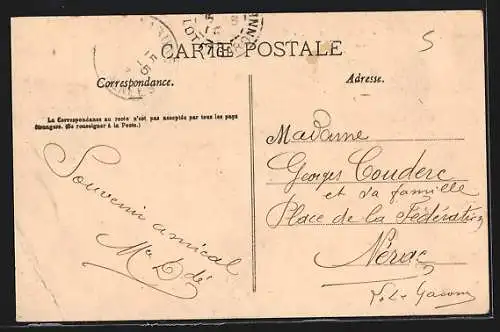 CARTE POSTALE
5
Correspondance.
Adresse.
La Correspondance au recto n'est pas acceptée par tous les pays
étrangers. (Se renseigner à la Poste.)
Souvenir amical
Madame
Georges Couderc
et sa famille
Place de la Fédération
Nérac